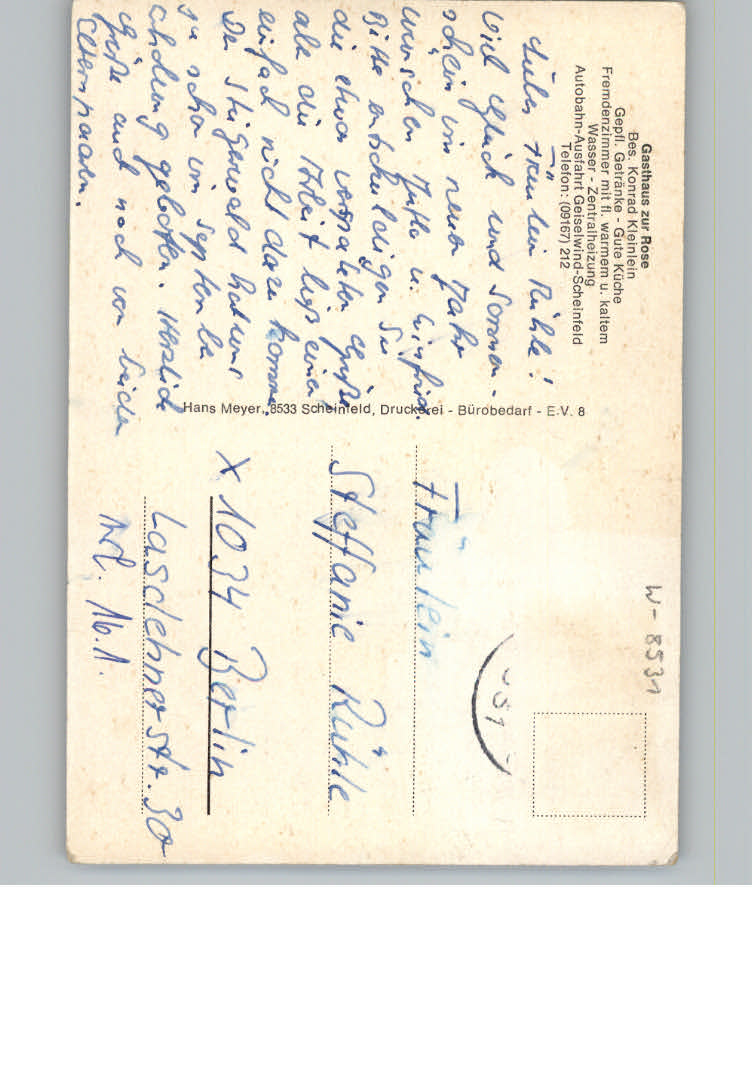 Gasthaus zur Rose
Bes. Konrad Kleinlein
Gepfl. Getränke - Gute Küche
Fremdenzimmer mit fl. warmem u. kaltem
Wasser - Zentralheizung
Autobahn-Ausfahrt Geiselwind-Scheinfeld
Telefon: (09167) 212
Liebes Fräulein Rühle!
Viel Glück und Sonnen-
schein im neuen Jahr
wünschen Jutta u. Winfried.
Bitte entschuldigen Sie
die etwas verspäteten Grüße
aber die Arbeit liess einen
einfach nicht dazu kommen.
Der Steigerwald hat uns
ja schon im September
Erholung geboten. Herzliche
Grüße auch noch von beiden
Elternpaaren.
Hans Meyer, 8533 Scheinfeld, Druckerei - Bürobedarf - E.V. 8
W-8531
Fräulein
Steffanie Rühle
X 1034 Berlin
Lasdehner Str. 30
16.1.